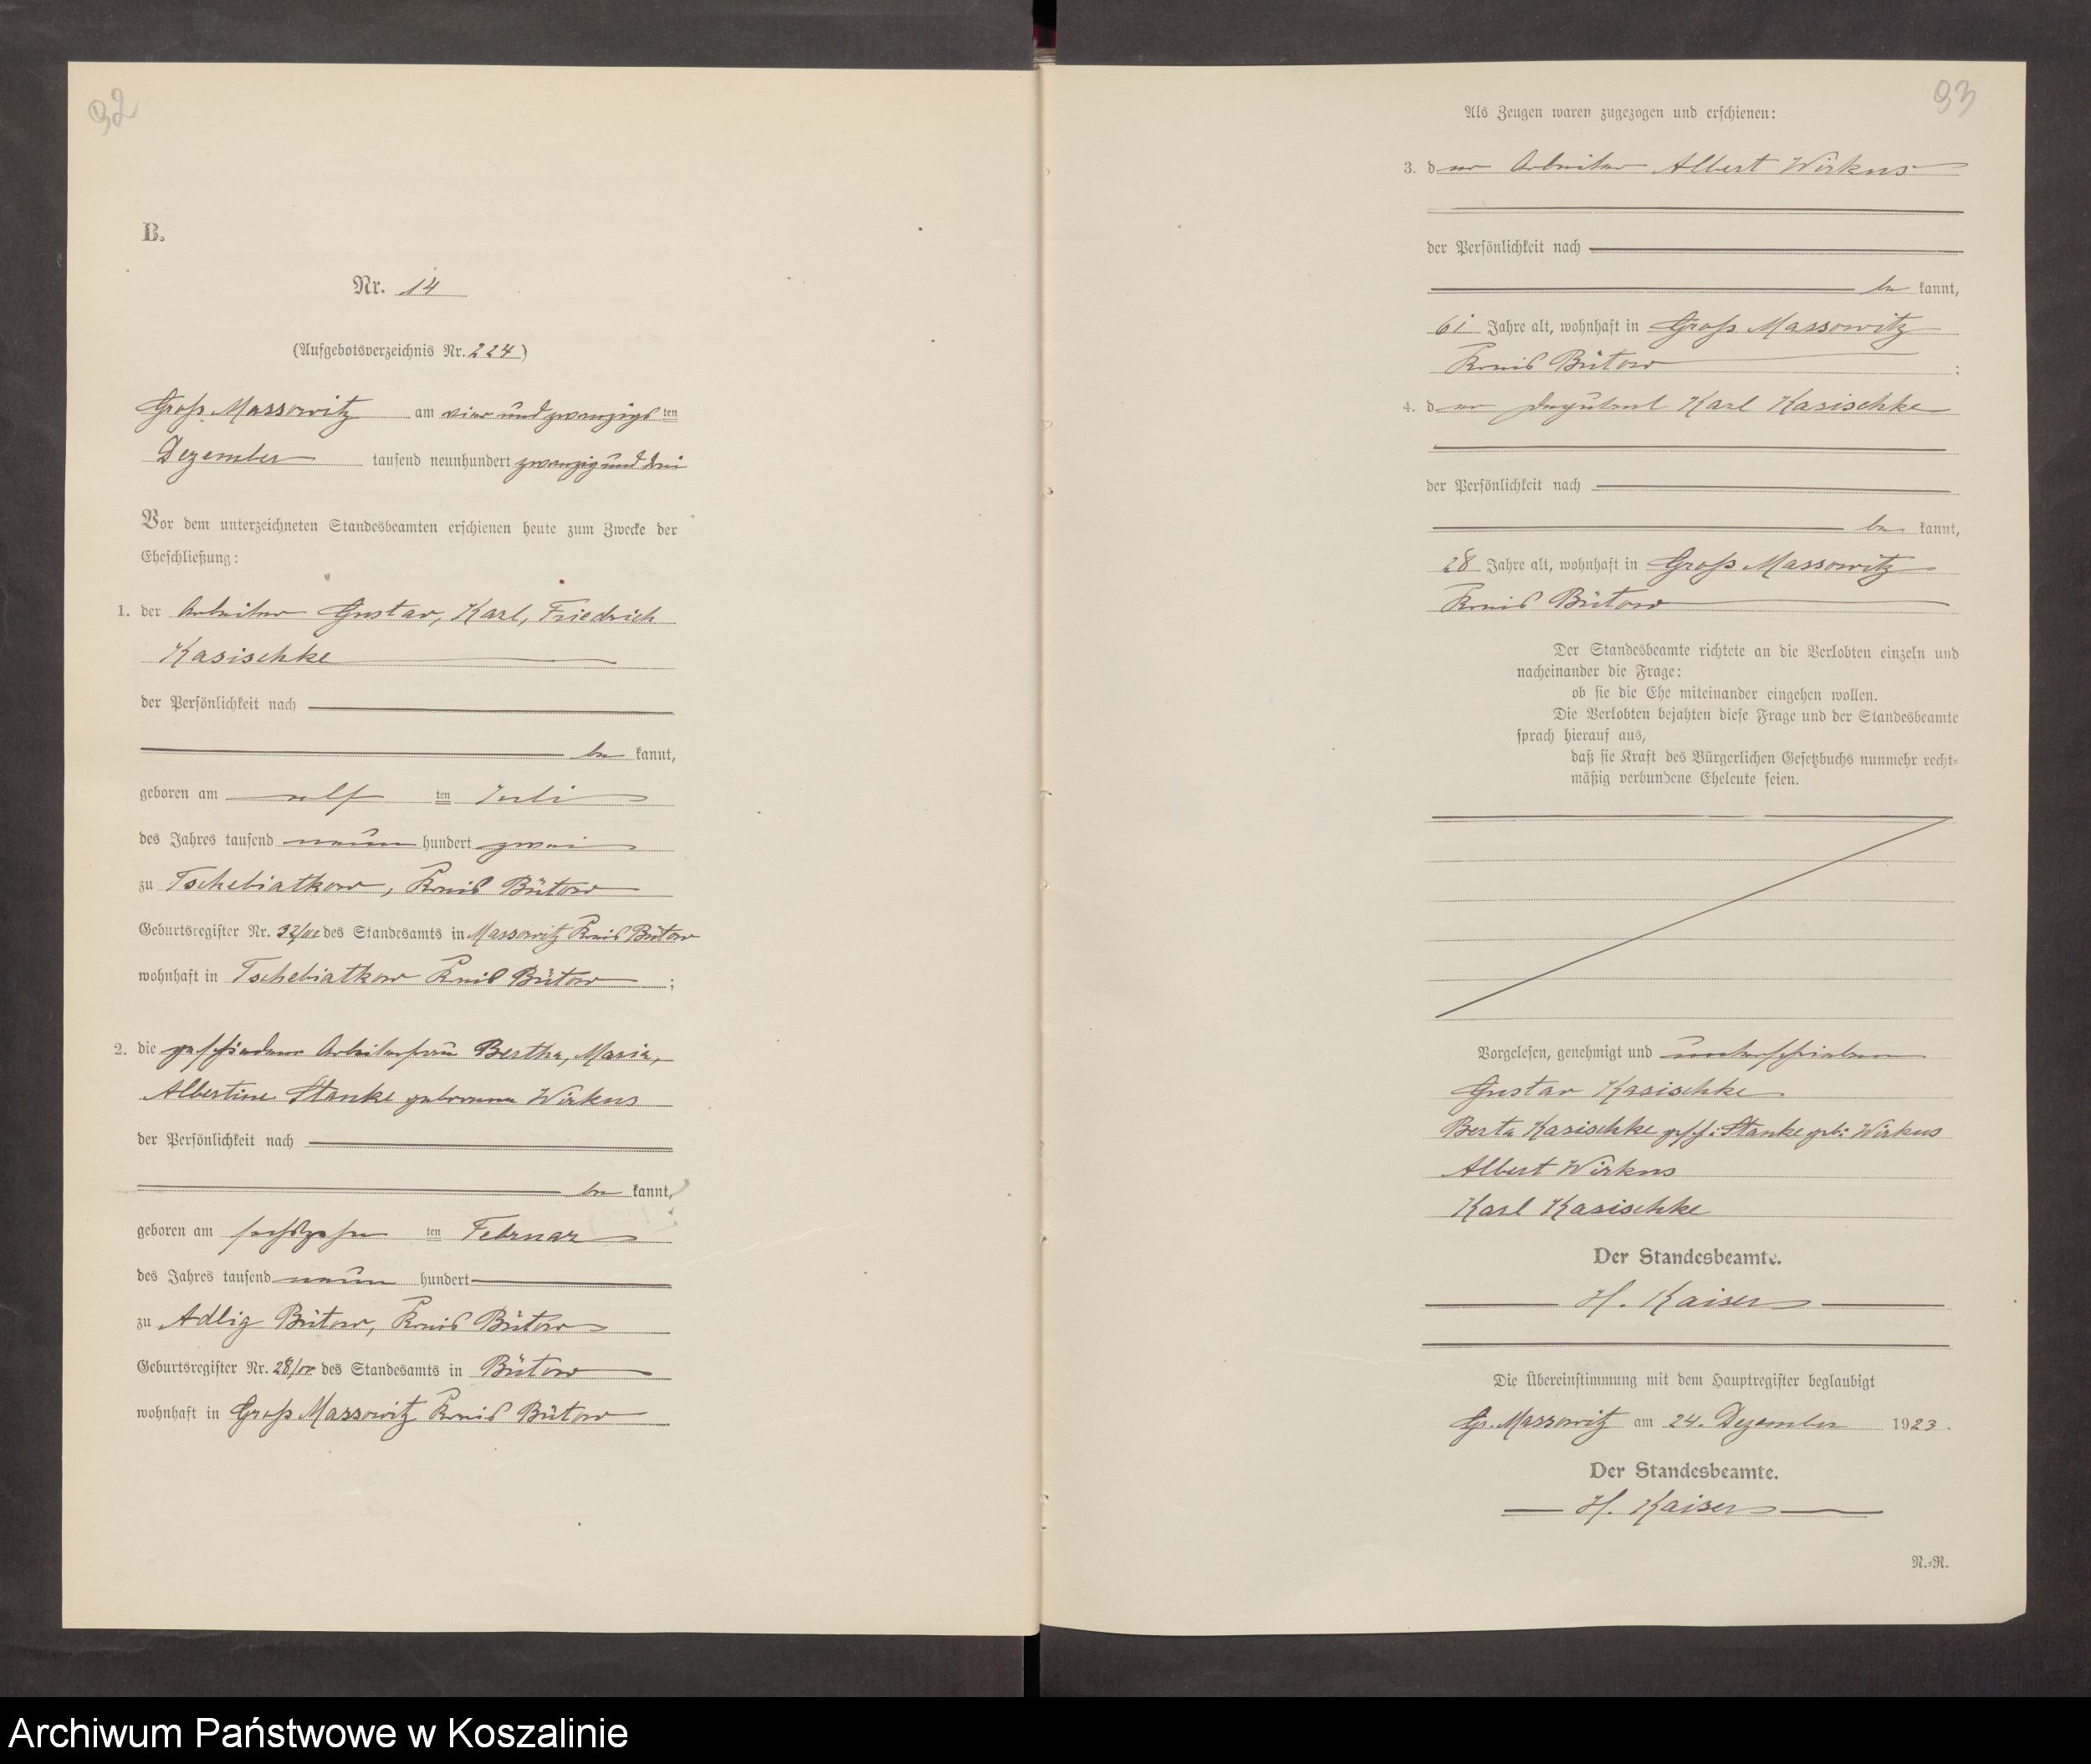 92
B.
Nr. 14
(Aufgebotsverzeichnis Nr. 224)
Groß Massowitz am vier und zwanzigsten
Dezember tausend neunhundert zwanzig und drei
Vor dem unterzeichneten Standesbeamten erschienen heute zum Zwecke der
Eheschließung:
1. der Arbeiter Gustav, Karl, Friedrich
Kasischke
der Persönlichkeit nach
be kannt,
geboren am elf ten Juli
des Jahres tausend neun hundert zwei
zu Tschebiatkow, Kreis Bütow
Geburtsregister Nr. 32/02 des Standesamts in Massowitz Kreis Bütow
wohnhaft in Tschebiatkow Kreis Bütow ;
2. die geschiedene Arbeiterfrau Bertha, Maria,
Albertine Stanke geborene Wirkus
der Persönlichkeit nach
be kannt,
geboren am sechszehn ten Februar
des Jahres tausend neun hundert
zu Adlig Bütow, Kreis Bütow
Geburtsregister Nr. 28/00 des Standesamts in Bütow
wohnhaft in Groß Massowitz Kreis Bütow
93
Als Zeugen waren zugezogen und erschienen:
3. der Arbeiter Albert Wirkus
der Persönlichkeit nach
be kannt,
61 Jahre alt, wohnhaft in Groß Massowitz
Kreis Bütow :
4. der Deputant Karl Kasischke
der Persönlichkeit nach
be kannt,
28 Jahre alt, wohnhaft in Groß Massowitz
Kreis Bütow
Der Standesbeamte richtete an die Verlobten einzeln und
nacheinander die Frage:
ob sie die Ehe miteinander eingehen wollen.
Die Verlobten bejahten diese Frage und der Standesbeamte
sprach hierauf aus,
daß sie Kraft des Bürgerlichen Gesetzbuchs nunmehr recht-
mäßig verbundene Eheleute seien.
Vorgelesen, genehmigt und unterschrieben
Gustav Kasischke
Berta Kasischke gesch: Stanke geb: Wirkus
Albert Wirkus
Karl Kasischke
Der Standesbeamte.
H. Kaiser
Die Übereinstimmung mit dem Hauptregister beglaubigt
Gr. Massowitz am 24. Dezember 1923.
Der Standesbeamte.
H. Kaiser
N.-R.
Archiwum Państwowe w Koszalinie